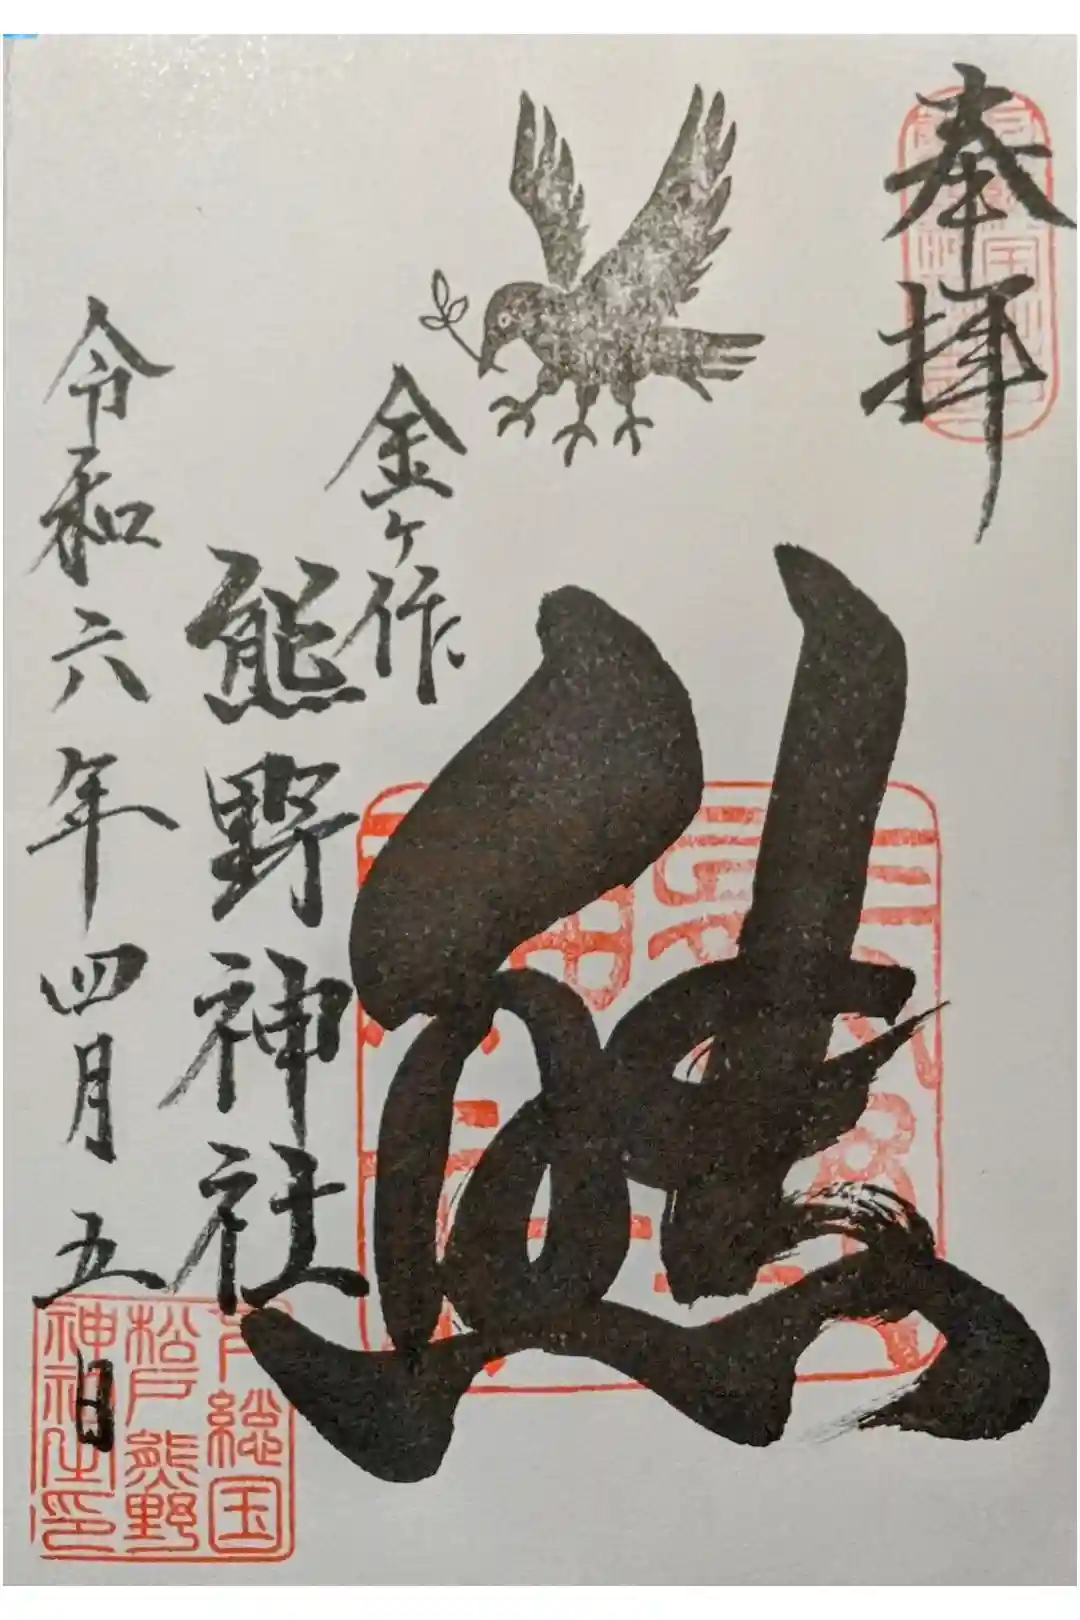 奉拝
熊
金ヶ作
熊野神社
令和六年四月五日
下総国
松戸熊野
神社之印